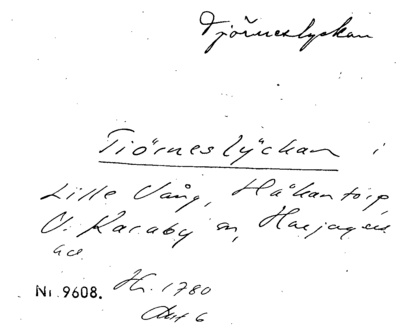 Tjörneslyckan
Tiörneslyckan i
Lille Vång, Håkantorp,
V. Karaby sn, Harjagers
hd.
Nr. 9608. Hr. 1780
Akt 6